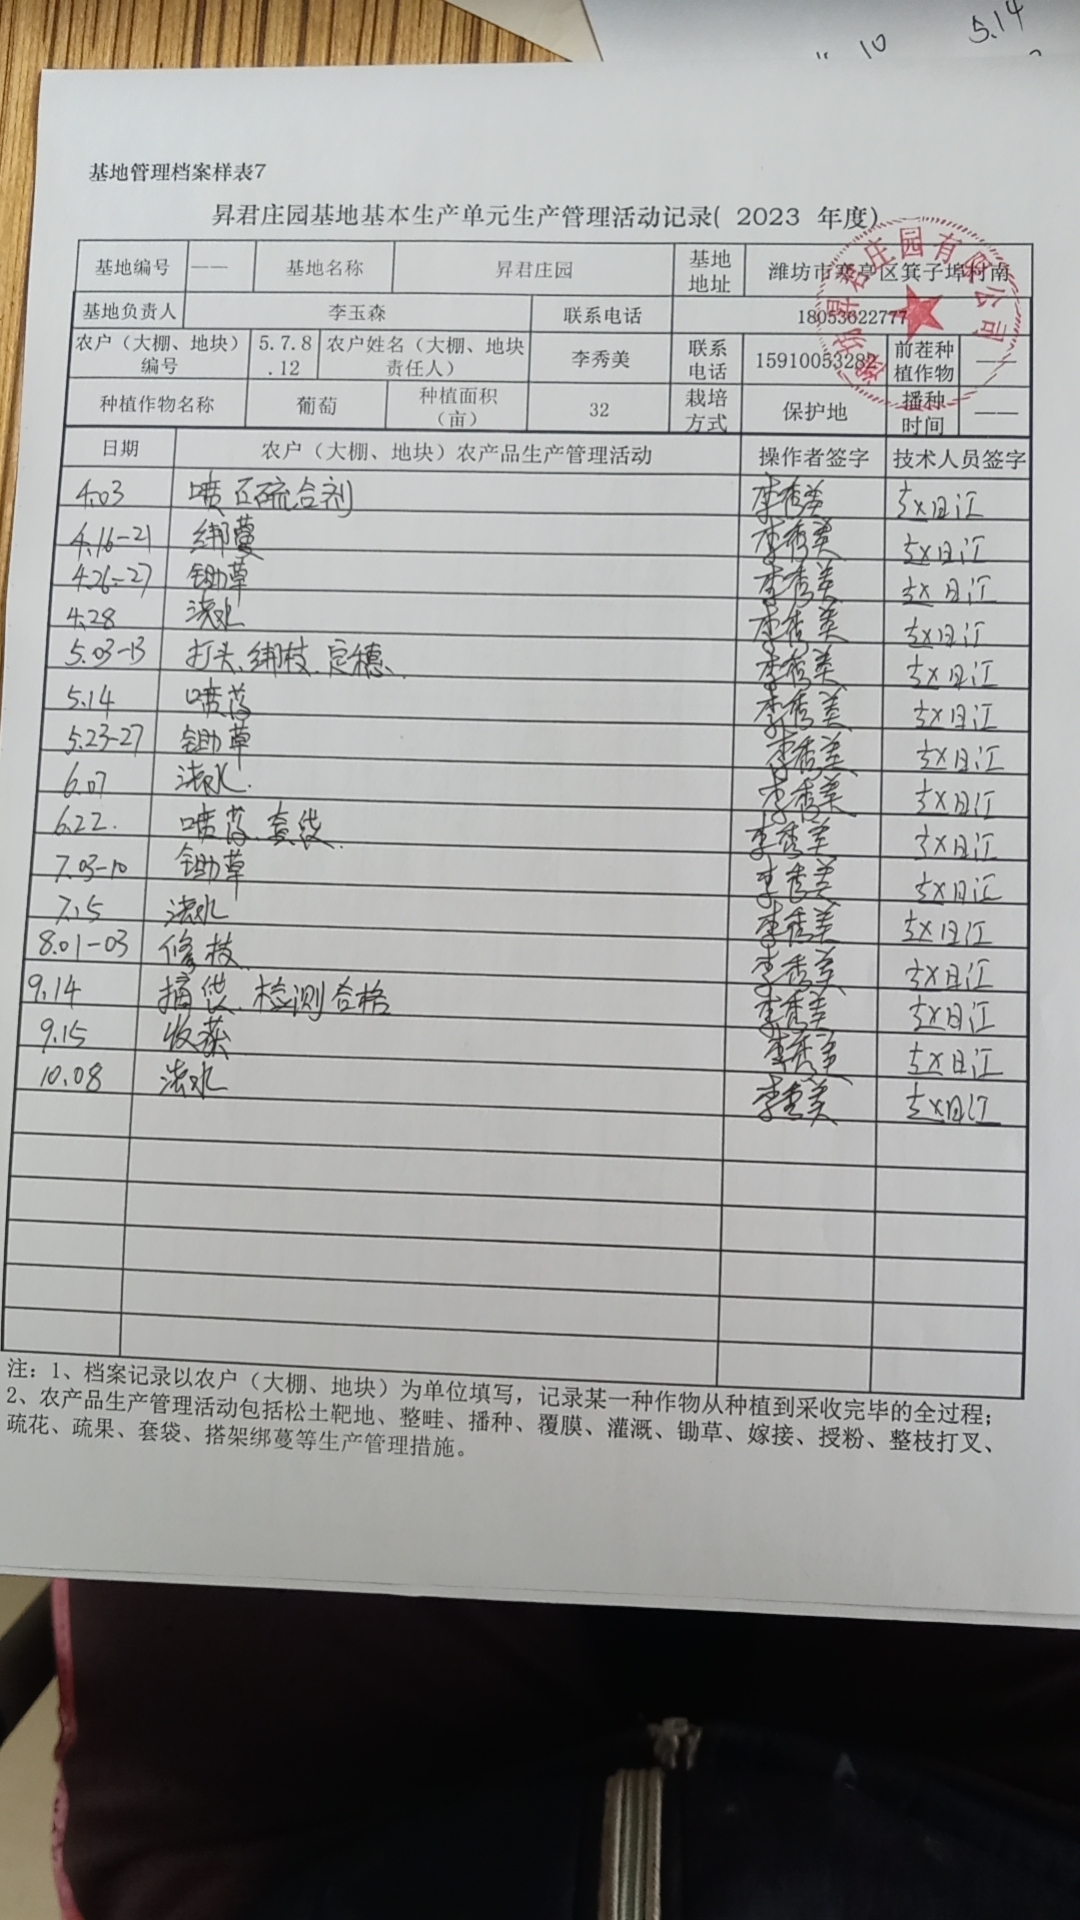 10 5.14
基地管理档案样表7
昇君庄园基地基本生产单元生产管理活动记录( 2023 年度)
基地编号 —— 基地名称 昇君庄园 基地地址 潍坊市寒亭区箕子埠村南
基地负责人 李玉森 联系电话 18053622777
农户（大棚、地块）编号 5.7.8.12 农户姓名（大棚、地块责任人） 李秀美 联系电话 1591005328 前茬种植作物 ——
种植作物名称 葡萄 种植面积（亩） 32 栽培方式 保护地 播种时间 ——
日期 农户（大棚、地块）农产品生产管理活动 操作者签字 技术人员签字
4.03 喷石硫合剂 李秀美
4.16-21 绑蔓 李秀美
4.26-27 锄草 李秀美
4.28 浇水 李秀美
5.03-13 打头、绑枝、定穗、 李秀美
5.14 喷药 李秀美
5.23-27 锄草 李秀美
6.07 浇水. 李秀美
6.22. 喷药、套袋、 李秀美
7.03-10 锄草 李秀美
7.15 浇水 李秀美
8.01-03 修枝 李秀美
9.14 摘袋、检测合格 李秀美
9.15 收获 李秀美
10.08 浇水 李秀美
注：1、档案记录以农户（大棚、地块）为单位填写，记录某一种作物从种植到采收完毕的全过程；
2、农产品生产管理活动包括松土靶地、整畦、播种、覆膜、灌溉、锄草、嫁接、授粉、整枝打叉、
疏花、疏果、套袋、搭架绑蔓等生产管理措施。